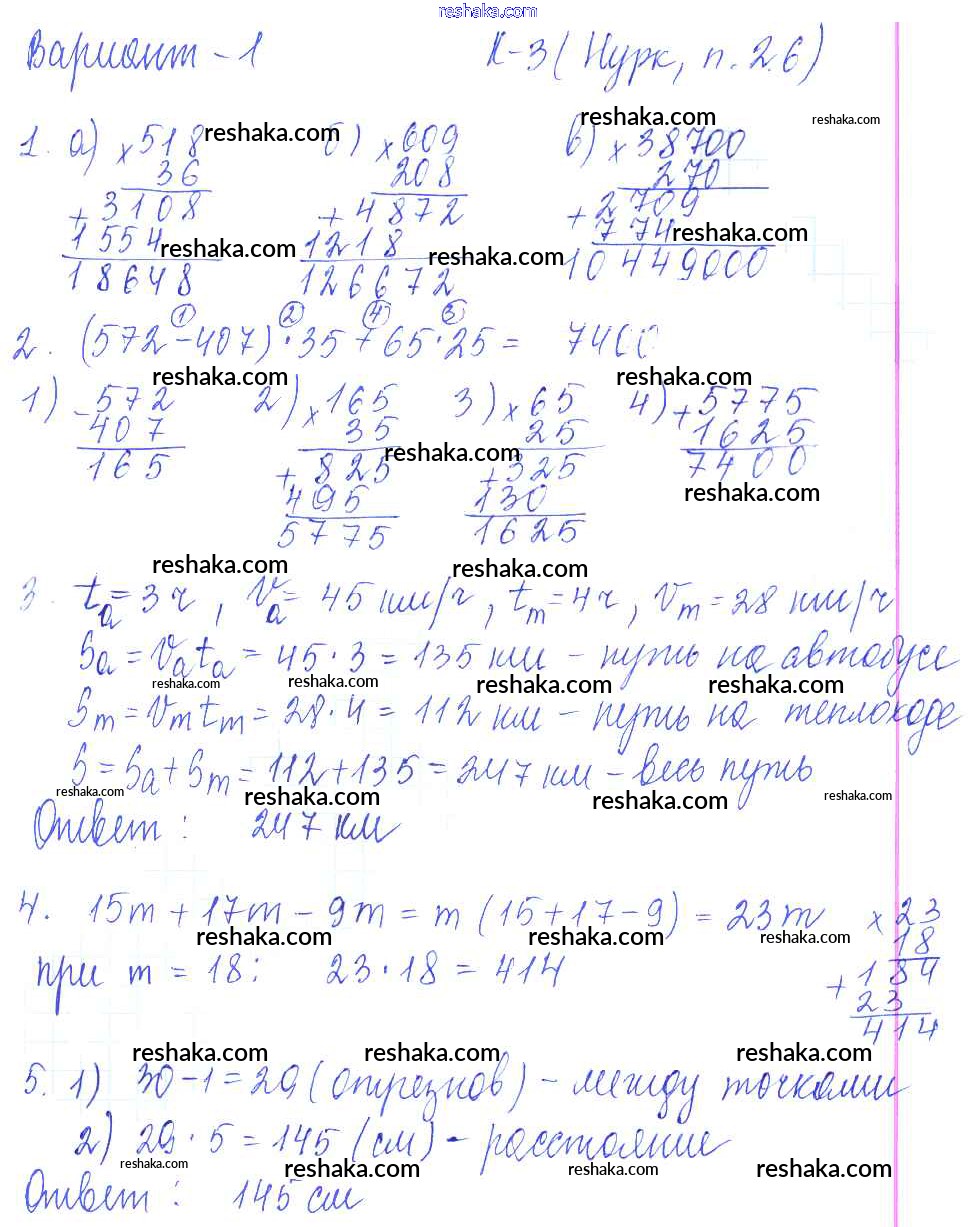 reshaka.com
Вариант - 1 К-3 (Нурк, п. 2.6)
reshaka.com reshaka.com reshaka.com
1. а) × 518 б) × 609 в) × 38700
36 208 270
+ 3108 + 4872 + 2709
1554 1218 774
reshaka.com reshaka.com reshaka.com
18648 126672 10449000
① ② ④ ③
2. (572 - 407) · 35 + 65 · 25 = 7400
reshaka.com reshaka.com
1) - 572 2) × 165 3) × 65 4) + 5775
407 35 25 1625
165 + 825 + 325 7400
reshaka.com reshaka.com
495 130
5775 1625
reshaka.com reshaka.com
3. tа = 3 ч, Vа = 45 км/ч, tт = 4 ч, Vт = 28 км/ч
Sа = Vаtа = 45 · 3 = 135 км - путь на автобусе
reshaka.com reshaka.com reshaka.com reshaka.com
Sт = Vтtт = 28 · 4 = 112 км - путь на теплоходе
S = Sа + Sт = 112 + 135 = 247 км - весь путь
reshaka.com reshaka.com reshaka.com reshaka.com
Ответ: 247 км
4. 15m + 17m - 9m = m (15 + 17 - 9) = 23m × 23
reshaka.com reshaka.com reshaka.com
18
при m = 18: 23 · 18 = 414 + 184
23
414
reshaka.com reshaka.com reshaka.com
5. 1) 30 - 1 = 29 (отрезков) - между точками
2) 29 · 5 = 145 (см) - расстояние
reshaka.com reshaka.com reshaka.com reshaka.com
Ответ: 145 см